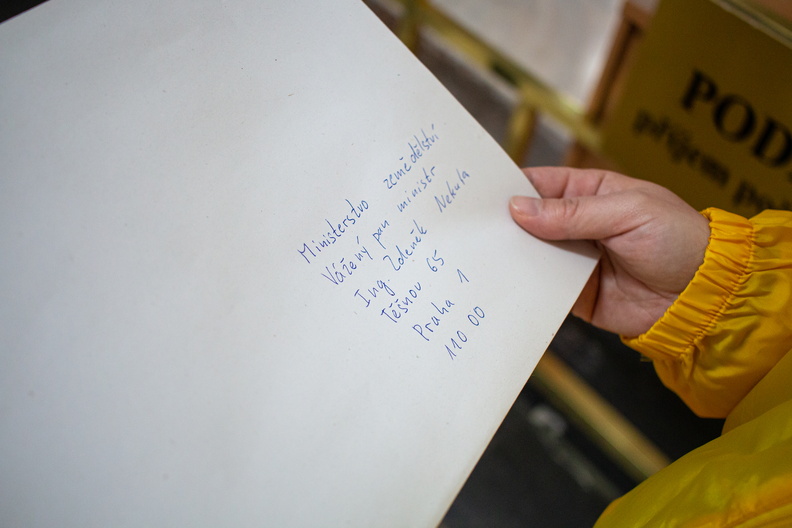 Ministerstvo zemědělství
Vážený pan ministr
Ing. Zdeněk Nekula
Těšnov 65
Praha 1
110 00
POD
příjem